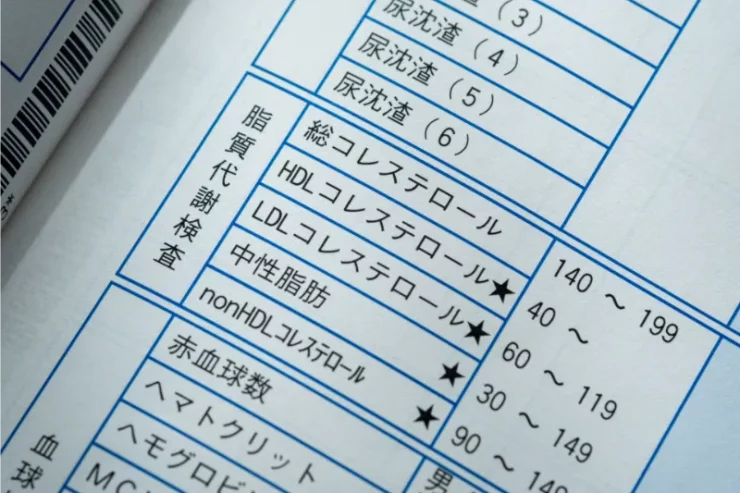 尿沈渣（3）
尿沈渣（4）
尿沈渣（5）
尿沈渣（6）
脂質代謝検査
総コレステロール 140 ～ 199
HDLコレステロール★ 40 ～
LDLコレステロール★ 60 ～ 119
中性脂肪 ★ 30 ～ 149
nonHDLコレステロール ★ 90 ～ 149
血球
赤血球数
ヘマトクリット
ヘモグロビ
MC
男